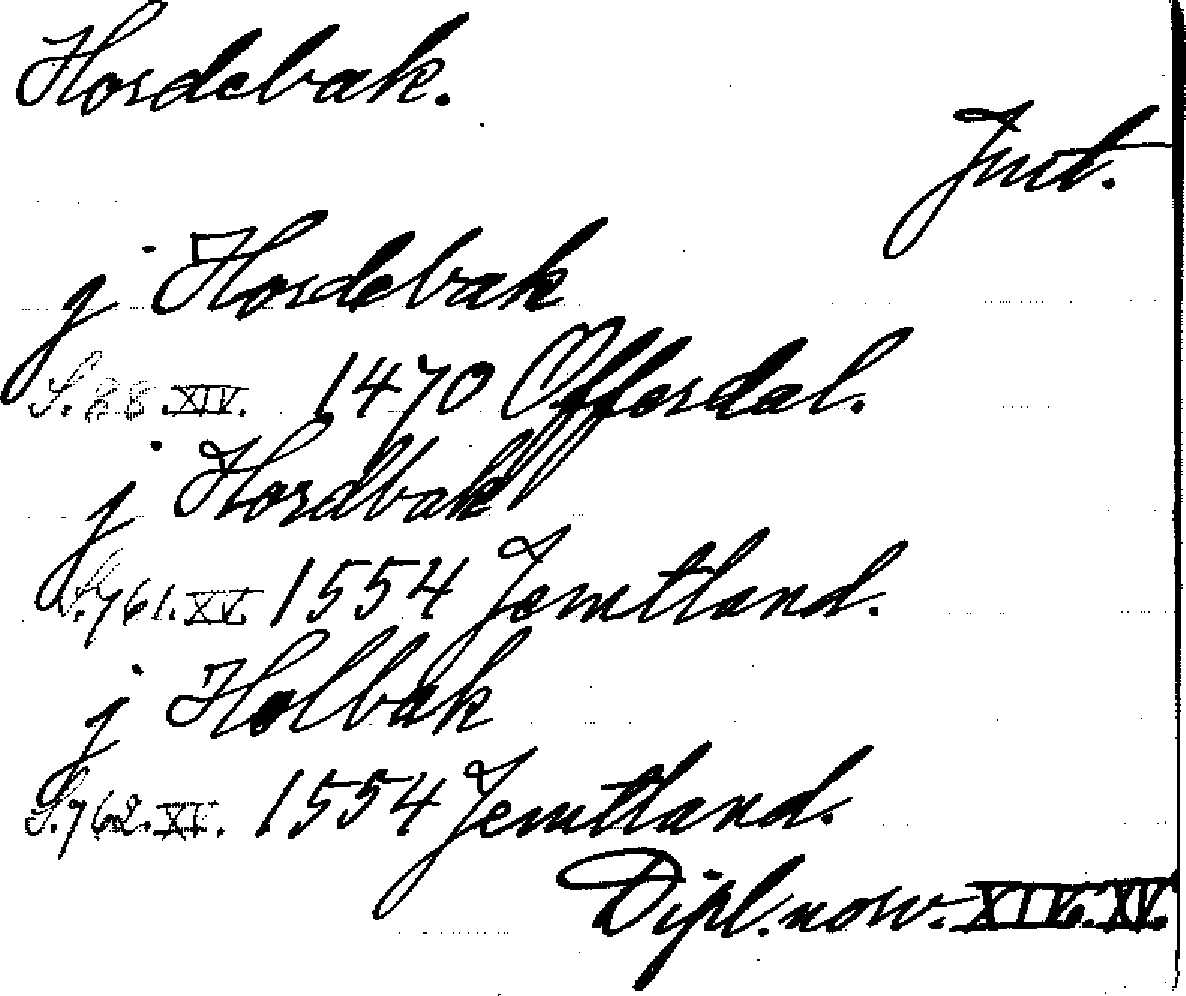 Hordebak.
Jmt.
j Hordebak
S. 88. XIV. 1470 Offerdal.
j Hordbak
S. 761. XV. 1554 Jemtland.
j Holbak
S. 762. XV. 1554 Jemtland.
Dipl. norv. XIV. XV.